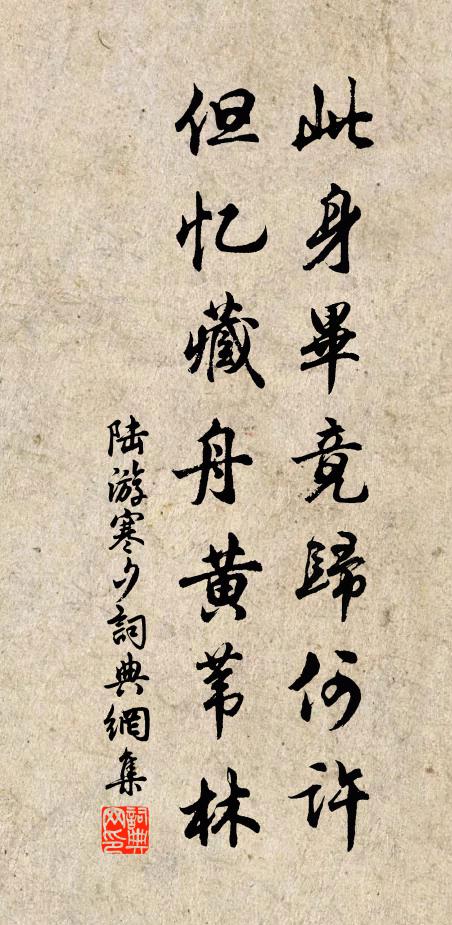 此身畢竟歸何許
但忆藏舟黄苇林
陆游寒夕詞典網集
詞典网印